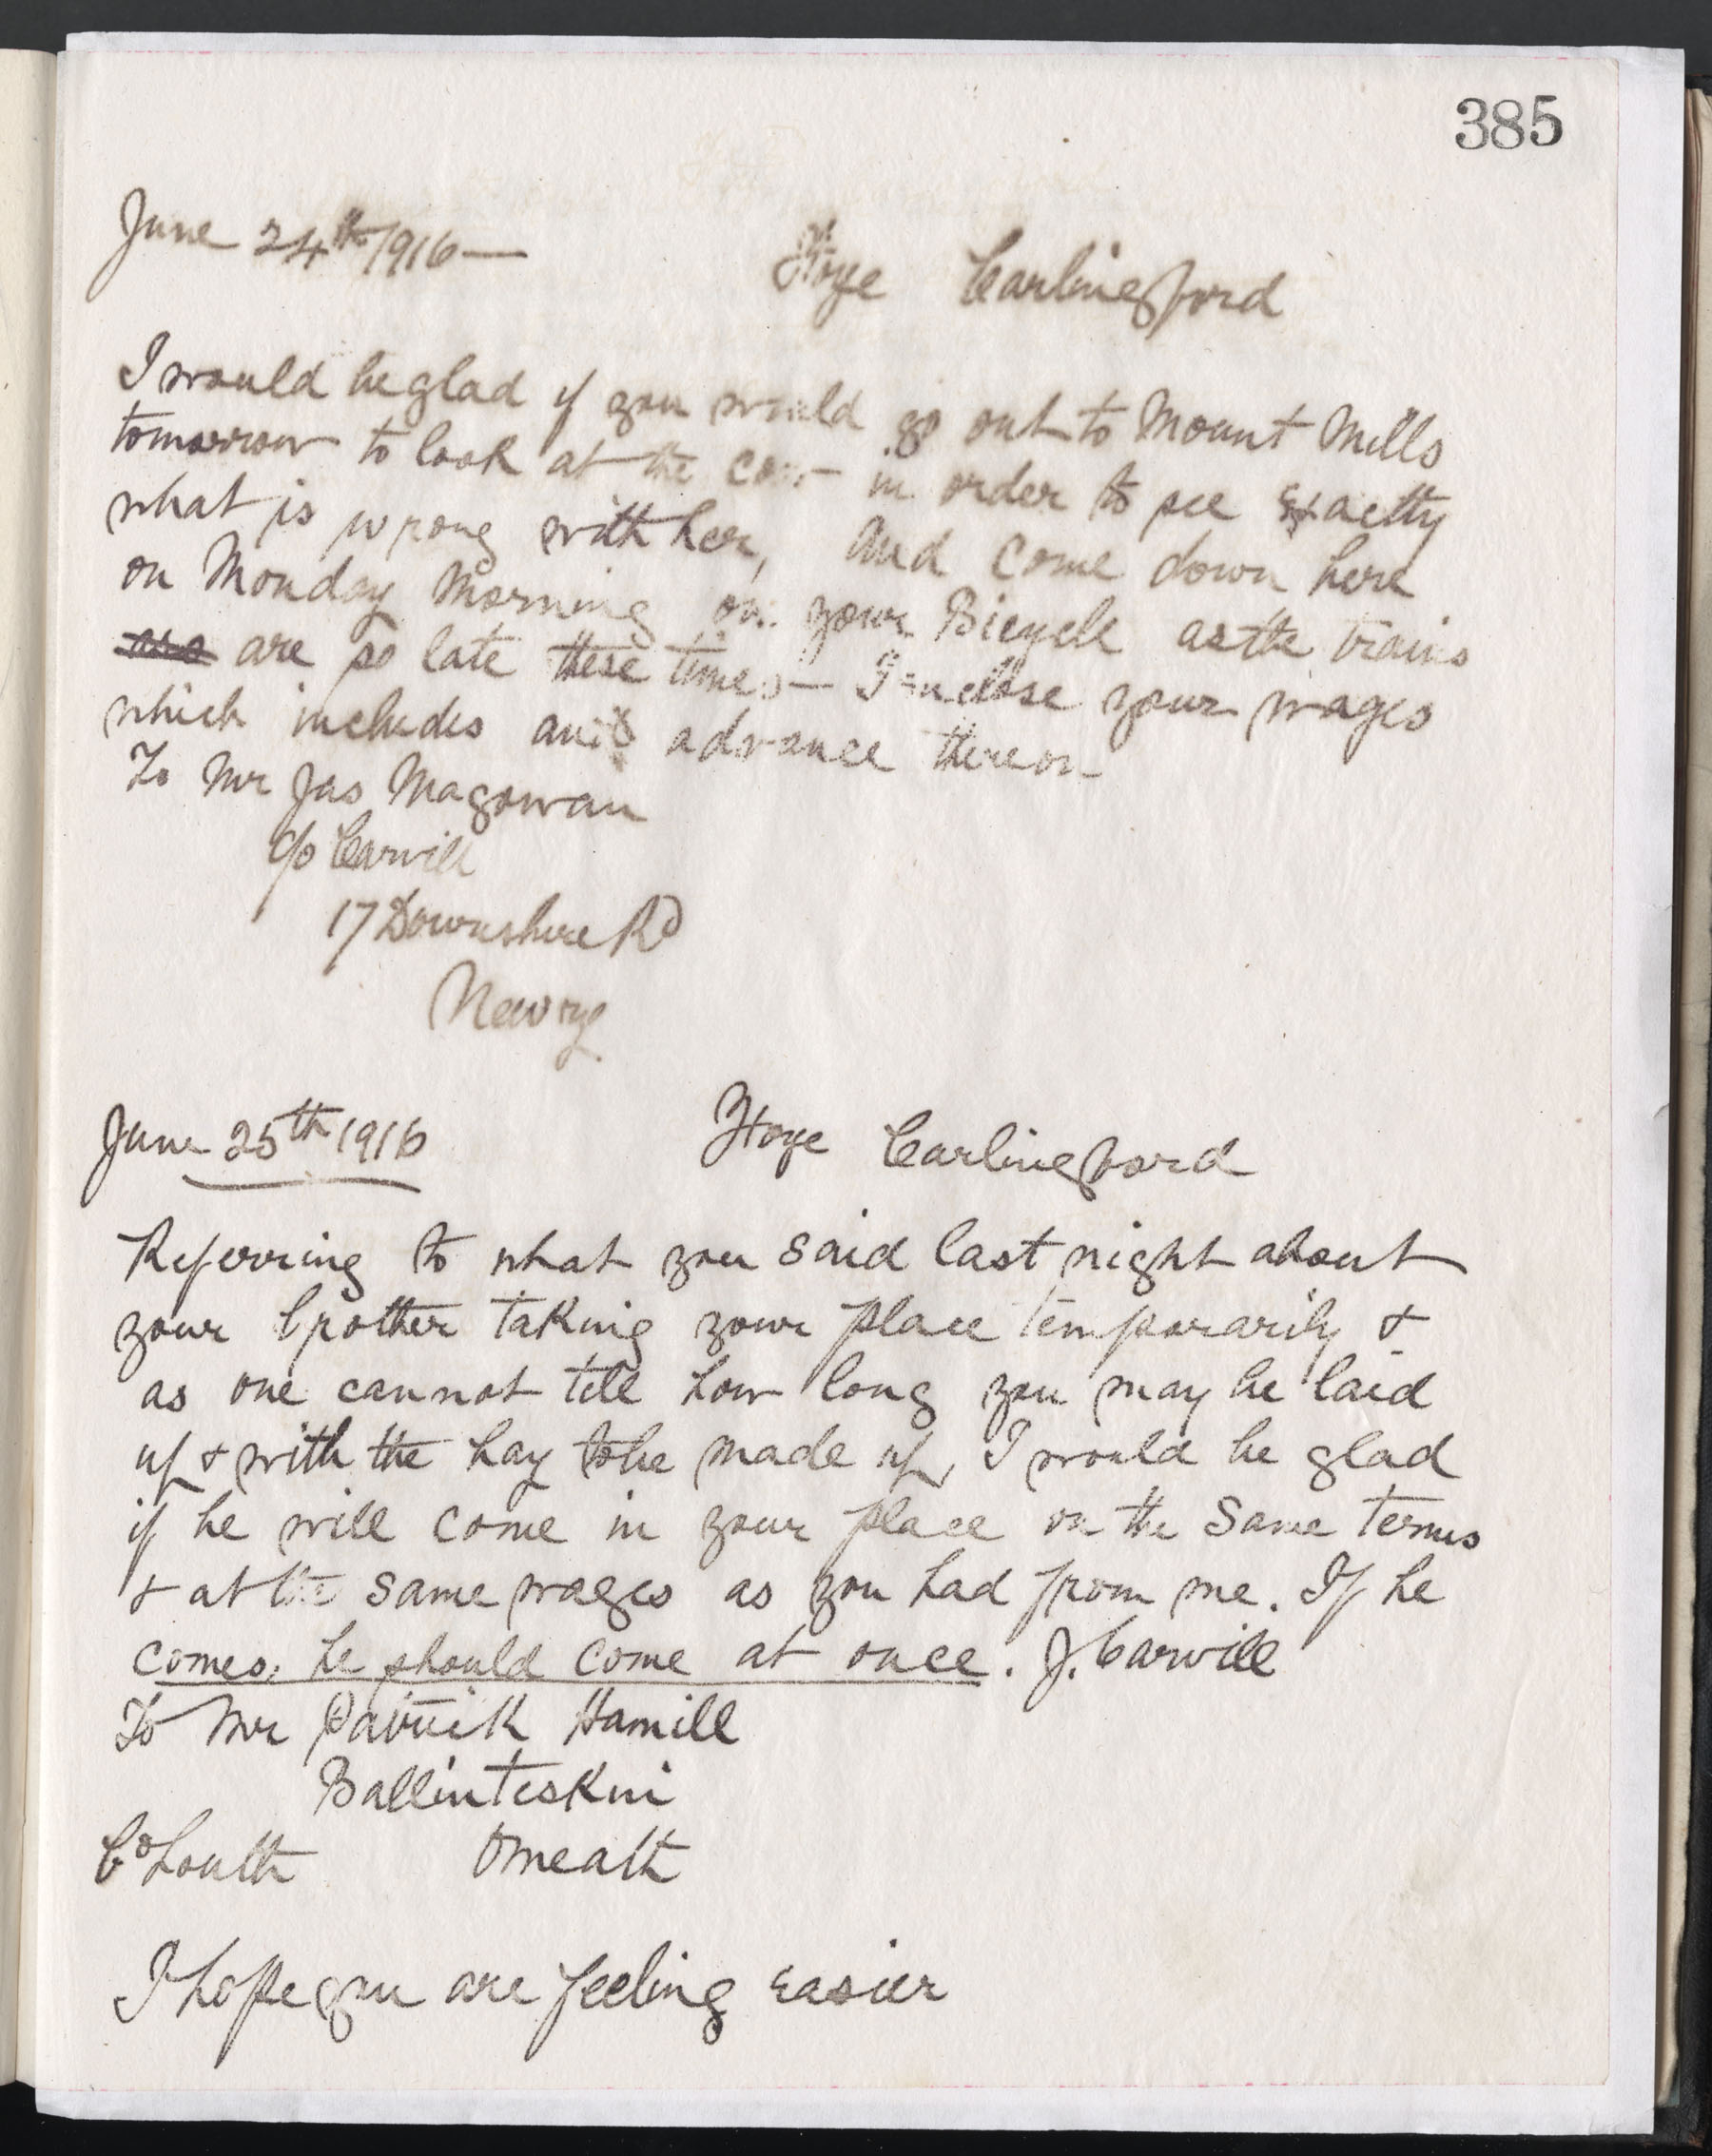 385
June 24th 1916 —
Ffoye Carlingford
I would be glad if you would go out to Mount Mills
tomorrow to look at the cow in order to see Exactly
what is wrong with her, and come down here
on Monday Morning on your Bicycle as the trains
are so late these times — I Enclose your wages
which includes an advance thereon
To Mr Jas Magowan
c/o Carvill
17 Downshire Rd
Newry
June 25th 1916
Ffoye Carlingford
Referring to what you said last night about
your brother taking your place temporarily &
as one cannot tell how long you may be laid
up & with the hay to be made up, I would be glad
if he will come in your place on the same terms
& at the same wages as you had from me. If he
comes, he should come at once. J. Carvill
To Mr Patrick Hamill
Ballinteskin
Co Louth Omeath
I hope you are feeling easier